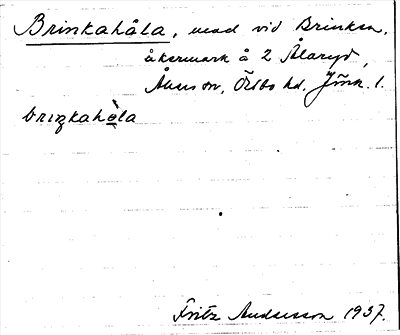 Brinkahåla, mad vid Brinken,
åkermark å 2 Ålaryd,
Ås sn, Östbo hd. Jönk. l.
brıŋkahòla
Fritz Andersson 1937.